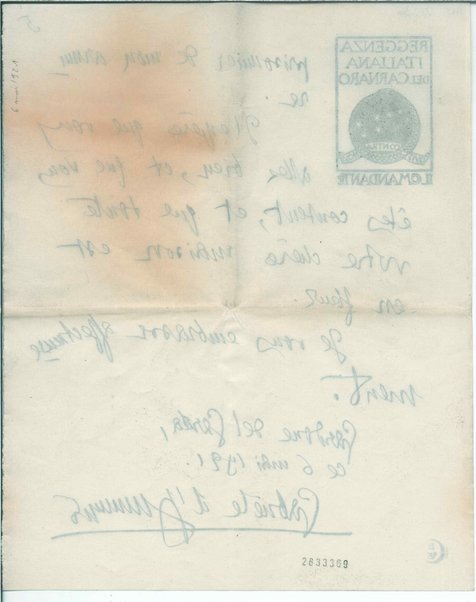 5
6 mai 1921
REGGENZA
ITALIANA
DEL CARNARO
IL COMANDANTE
prisonnier de mon armu
re.
J'espère que vous
allez bien, et que vous
êtes content, et que toute
votre chère maison est
en fleur.
Je vous embrasse affectueuse
ment.
Gardone del Garda,
ce 6 mai 1921.
Gabriele d'Annunzio
2833369